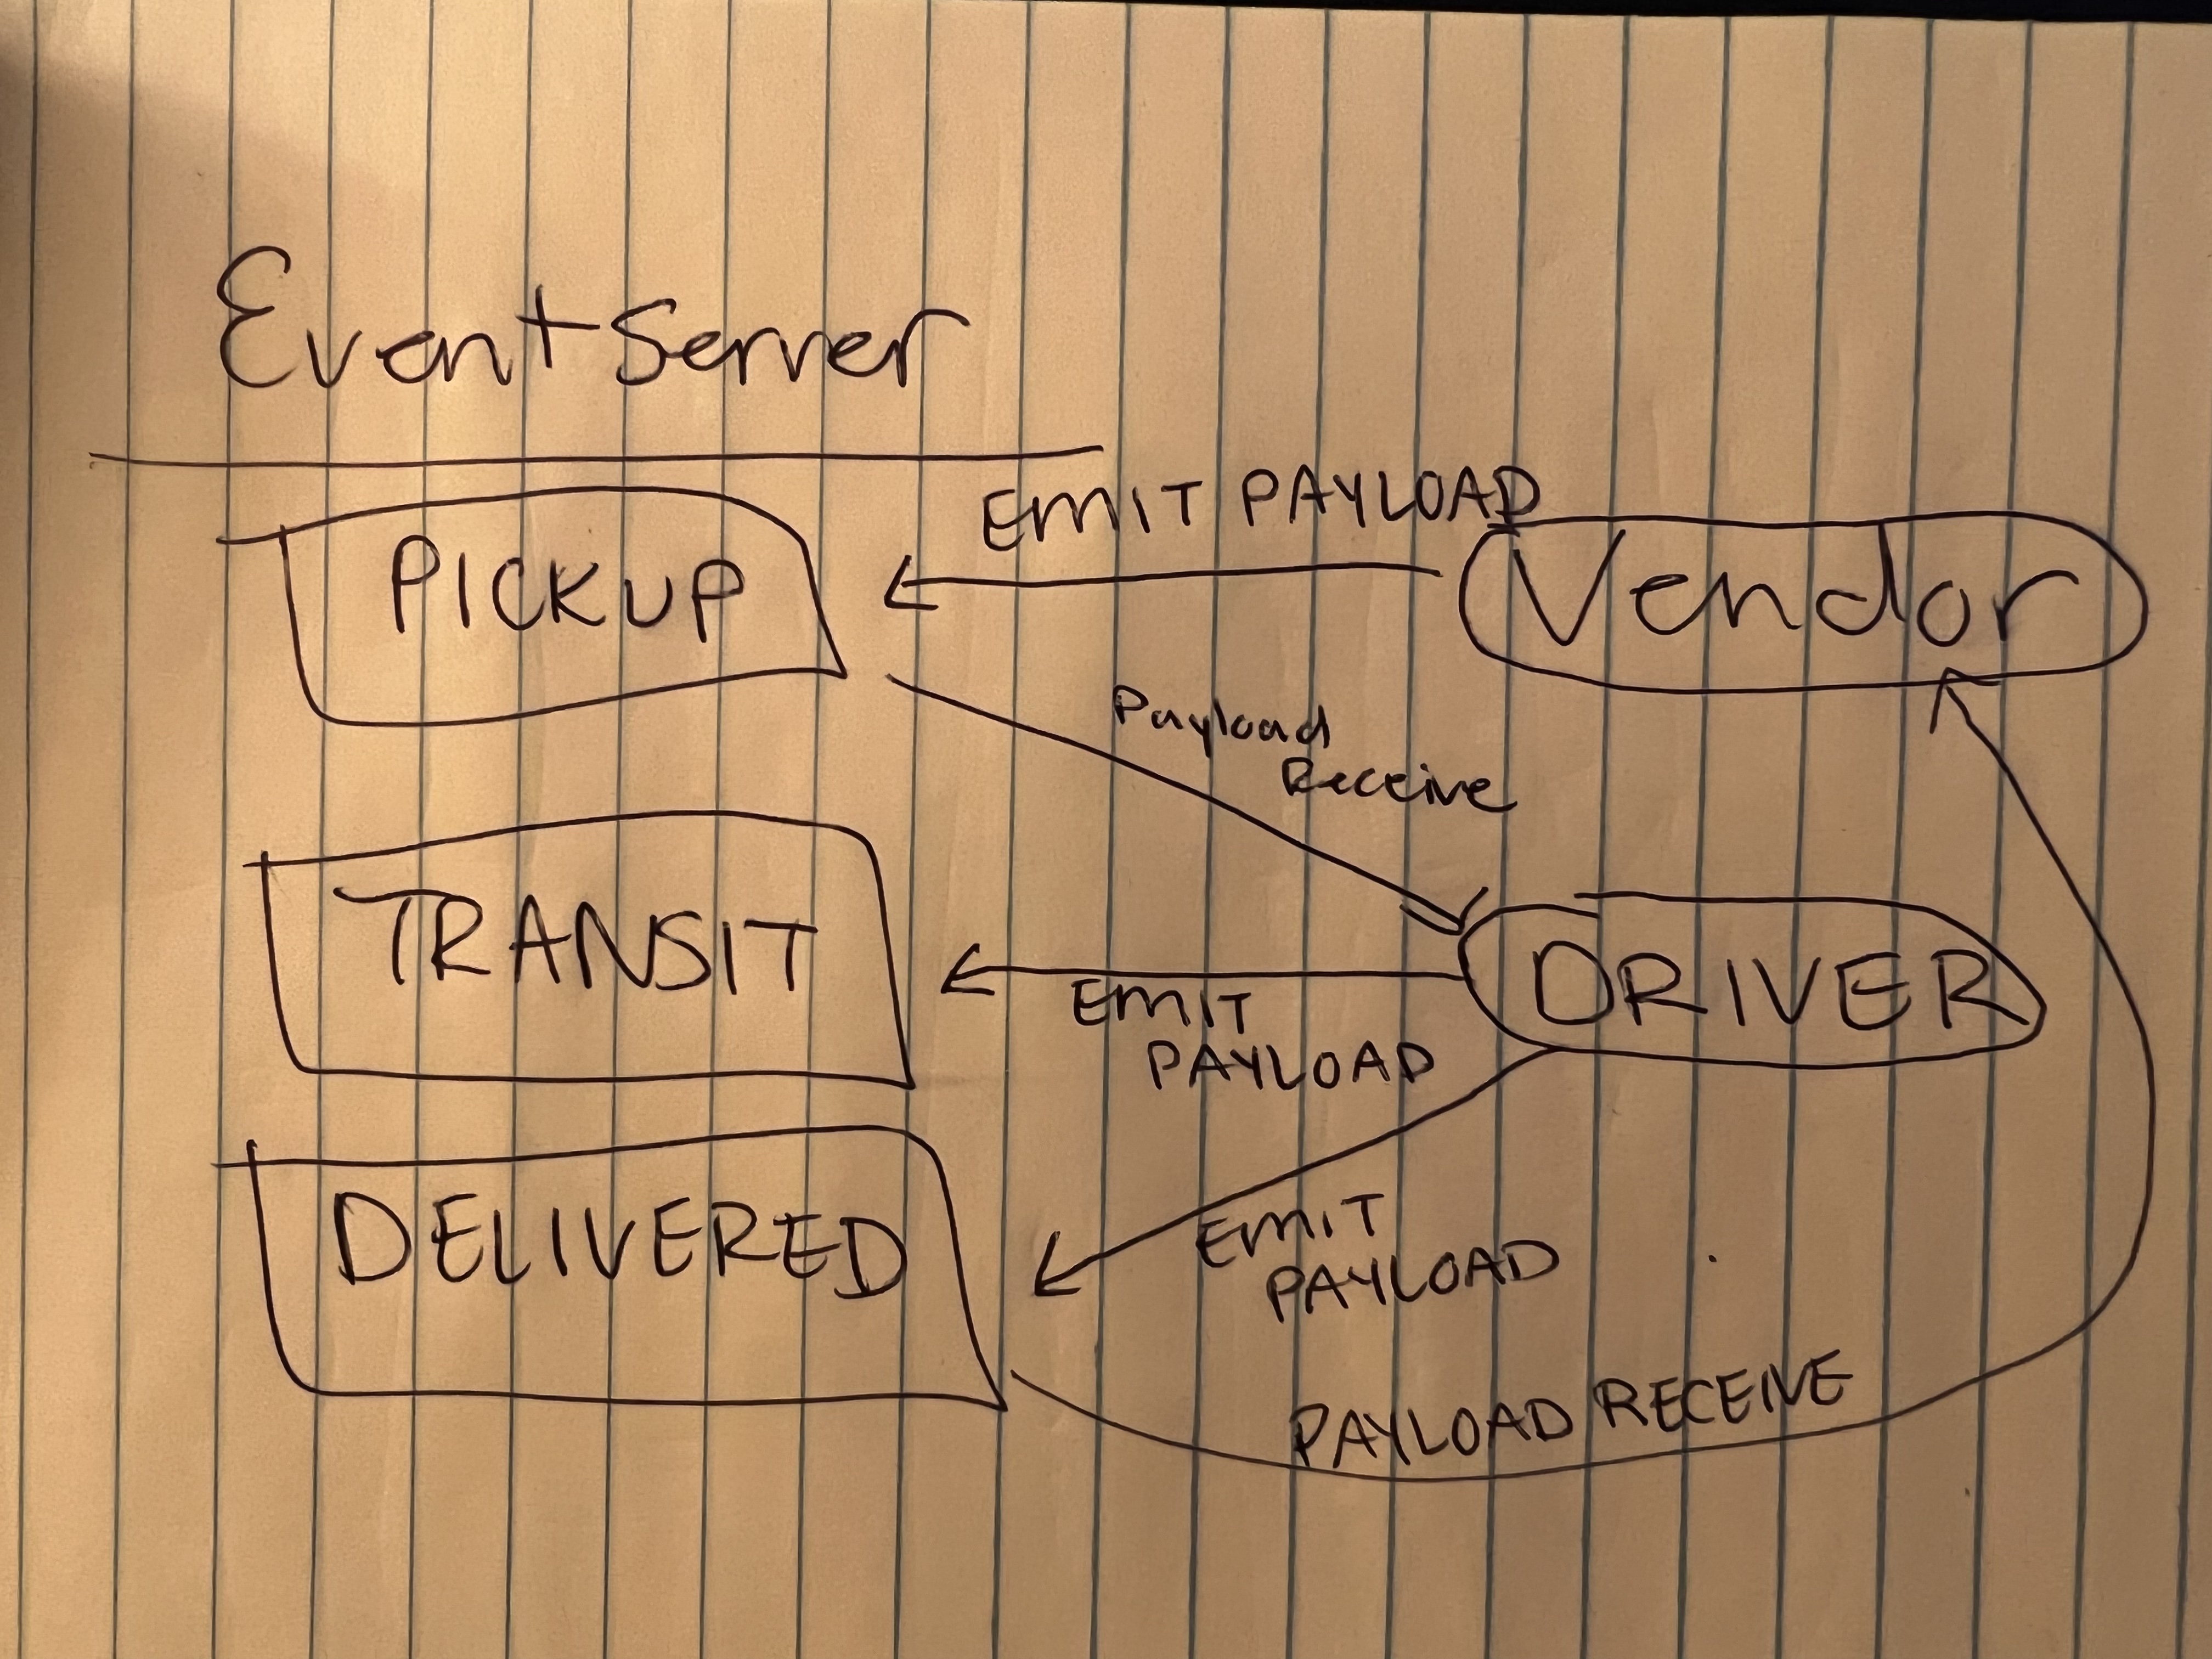 Event Server
EMIT PAYLOAD
PICKUP
Vendor
Payload
Receive
TRANSIT
DRIVER
EMIT
PAYLOAD
DELIVERED
EMIT
PAYLOAD
PAYLOAD RECEIVE